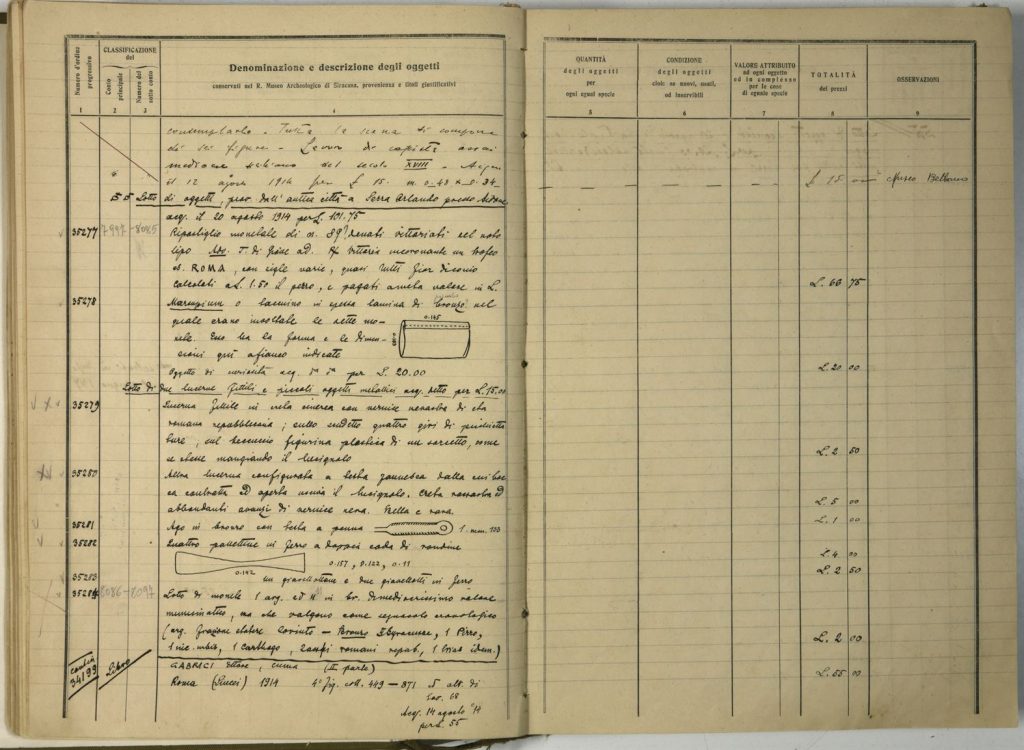 Numero d'ordine progressivo
CLASSIFICAZIONE del
Conto principale
Numero del sotto conto
Denominazione e descrizione degli oggetti
conservati nel R. Museo Archeologico di Siracusa, provenienza e titoli giustificativi
1 2 3 4
QUANTITÀ degli oggetti per ogni egual specie
CONDIZIONE degli oggetti cioè: se nuovi, usati, od inservibili
VALORE ATTRIBUITO ad ogni oggetto ed in complesso per le cose di eguale specie
TOTALITÀ dei prezzi
OSSERVAZIONI
5 6 7 8 9
contemplarlo. Tutta la scena si compone
di sei figure. Lavoro di
mediocre siciliano del secolo XVIII. Acq.
il 12 agosto 1914 per £ 15. m. 0.48 x 0.34
£ 15 Museo Bellomo
Lotto di oggetti, prov. dall'antica città a Serra Orlando presso Aidone
acq. il 20 agosto 1914 per L. 101.75
35277 7997-8085 Ripostiglio monetale di n. 89 denari vittoriati col noto
tipo Δδς. T. di Giove ad. R/ Vittoria incoronante un trofeo
es. ROMA, con sigle varie, quasi tutti fior di conio
Calcolati a L. 1.50 il pezzo, e pagati a metà valore in L.
L. 66 75
35278 Marsupium o taschino in spessa lamina di bronzo nel
quale erano le dette mo-
nete. Esso ha la forma e le dimen-
sioni qui a fianco indicate
0.145
Oggetto di curiosità acq. per L. 20.00
L. 20 00
Lotto di due lucerne fittili e piccoli oggetti metallici acq. per L. 15,00
35279 Lucerna fittile in creta cinerea con vernice nerastra di età
romana repubblicana; sullo quattro giri di
ture; sul beccuccio figurina plastica di un sorcetto, come
se stesse mangiando il lucignolo
L. 2 50
35280 Altra lucerna configurata a testa dalla cui boc
ca contratta ed aperta usciva il lucignolo. Creta rossastra ed
abbondanti avanzi di vernice nera. Bella e rara.
L. 5 00
35281 Ago in bronzo con testa a penna l. mm. 123
L. 1 00
35282 Quattro palettine in ferro a doppia coda di rondine
0.142 0.157, 0.122, 0.11
L. 4 00
35283 Un giavellottone e due giavellotti in ferro
L. 2 50
35284 8086-8097 Lotto di monete 1 arg. ed 11 in br. di mediocrissimo valore
numismatico, ma che valgono come segnacolo cronologico
(arg. frazione statere Corinto — Bronzo Syracusae, 1 Pirro,
1 inc. , 1 Carthago, romani repub., 1 idem.)
L. 2 00
34199 Libro
GABRICI Ettore, Cuma (II parte)
Roma (Lincei) 1914 4° fig. coll. 449 — 871
L. 55 00
Tav. 68
Acq. 14 agosto '14
per L. 55